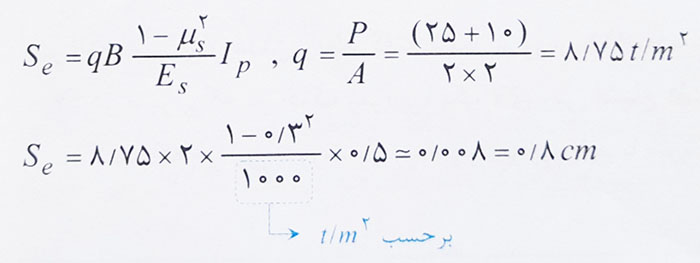 S_e = qB (۱ − μ_s^۲)/E_s I_p , q = P/A = (۲۵ + ۱۰)/(۲ × ۲) = ۸/۷۵ t/m^۲
S_e = ۸/۷۵ × ۲ × (۱ − ۰/۳^۲)/۱۰۰۰ × ۰/۵ ≃ ۰/۰۰۸ = ۰/۸ cm
برحسب t/m^۲